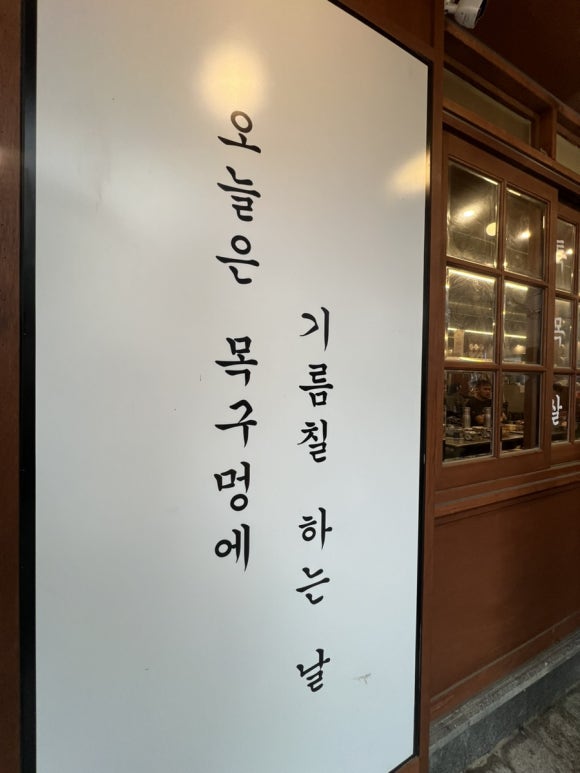 오늘은 목구멍에
기름칠 하는 날
목
살